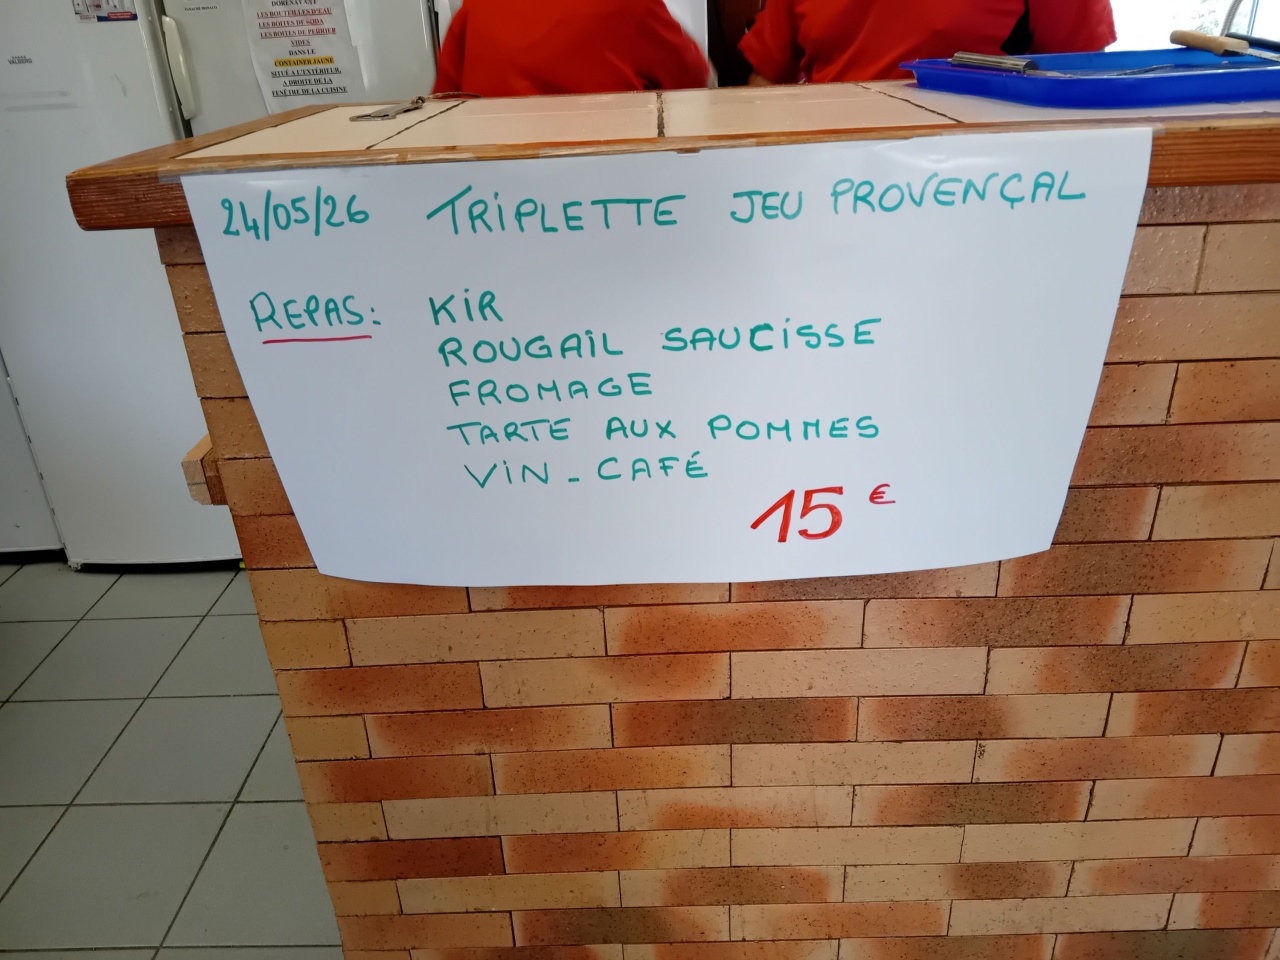 DORÉNAVANT
LES BOUTEILLES D'EAU
LES BOITES DE SODA
LES BOITES DE PERRIER
VIDES
DANS LE
CONTAINER JAUNE
SITUÉ A L'EXTÉRIEUR,
A DROITE DE LA
FENÊTRE DE LA CUISINE
24/05/26 TRIPLETTE JEU PROVENÇAL
REPAS: KIR
ROUGAIL SAUCISSE
FROMAGE
TARTE AUX POMMES
VIN - CAFÉ
15 €